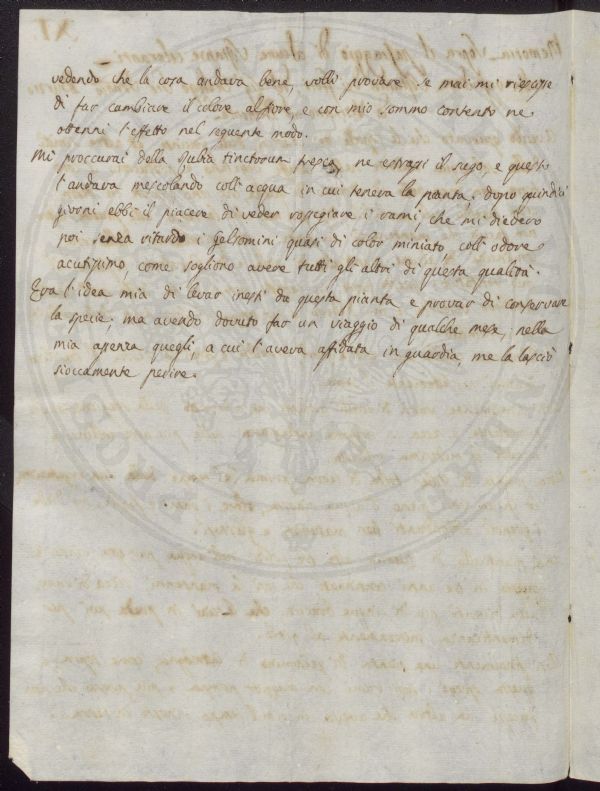 vedendo che la cosa andava bene, volli provare se mai mi riescisse
di far cambiare il colore al fiore, e con mio sommo contento ne
ottenni l'effetto nel seguente modo.
Mi proccurai della Rubia tinctorum fresca, ne estrassi il sugo, e questo
l'andava mescolando coll'acqua in cui teneva la pianta; dopo quindici
giorni ebbi il piacere di veder rosseggiare i rami, che mi diedero
poi senza ritardo i Gelsomini quasi di color miniato coll'odore
acutissimo, come sogliono avere tutti gli altri di questa qualità.
Era l'idea mia di levar inesti da questa pianta e provar di conservare
la specie; ma avendo dovuto far un viaggio di qualche mese, nella
mia assenza quegli, a cui l'aveva affidata in guardia, me la lasciò
sioccamente perire.